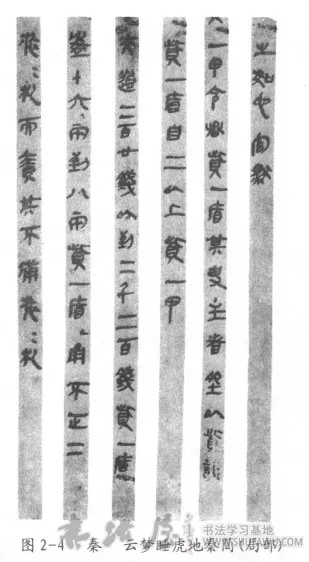 之如它官然
一甲令丞貲一盾其吏主者坐以貲誶
貲一盾自二以上貲一甲
夫過二百廿錢以到二千二百錢貲一盾
盈十六兩到八兩貲一盾甬不正二
旅=札而責其不備旅=札
图2-4 秦 云梦睡虎地秦简(局部)
书法学习基地